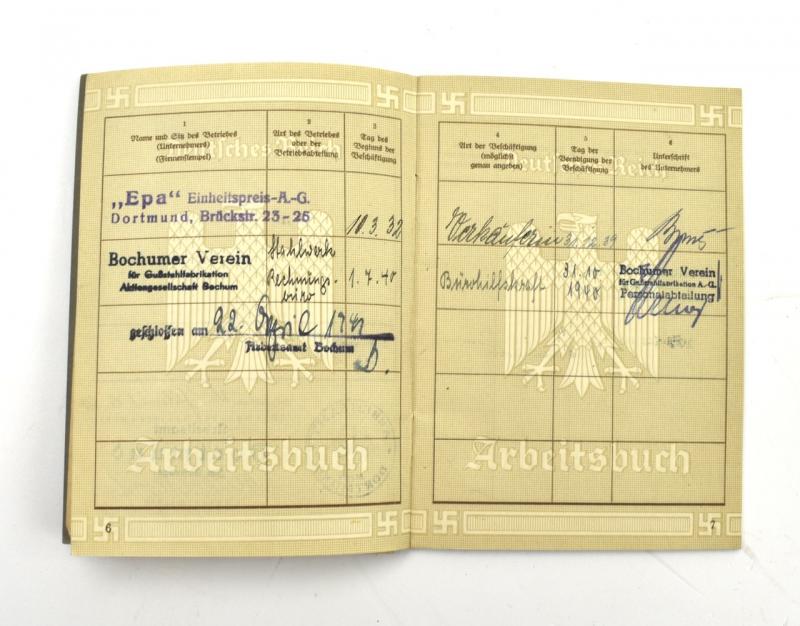 1
Name und Sitz des Betriebes
(Unternehmers)
(Firmenstempel)
2
Art des Betriebes
oder der
Betriebsabteilung
3
Tag des
Beginns der
Beschäftigung
Deutsches Reich
„Epa“ Einheitspreis-A.-G.
Dortmund, Brückstr. 23-25
10.3.32
Bochumer Verein
für Gußstahlfabrikation
Aktiengesellschaft Bochum
Stahlwerk
Rechnungs-
büro
1.7.40
geschlossen am 22. April 1941
Arbeitsamt Bochum
Arbeitsbuch
6
4
Art der Beschäftigung
(möglichst
genau angeben)
5
Tag der
Beendigung der
Beschäftigung
6
Unterschrift
des Unternehmers
Deutsches Reich
Verkäuferin
31.12.39
Bürohilfskraft
31.10
1940
Bochumer Verein
für Gußstahlfabrikation A.-G.
Personalabteilung
Arbeitsbuch
7